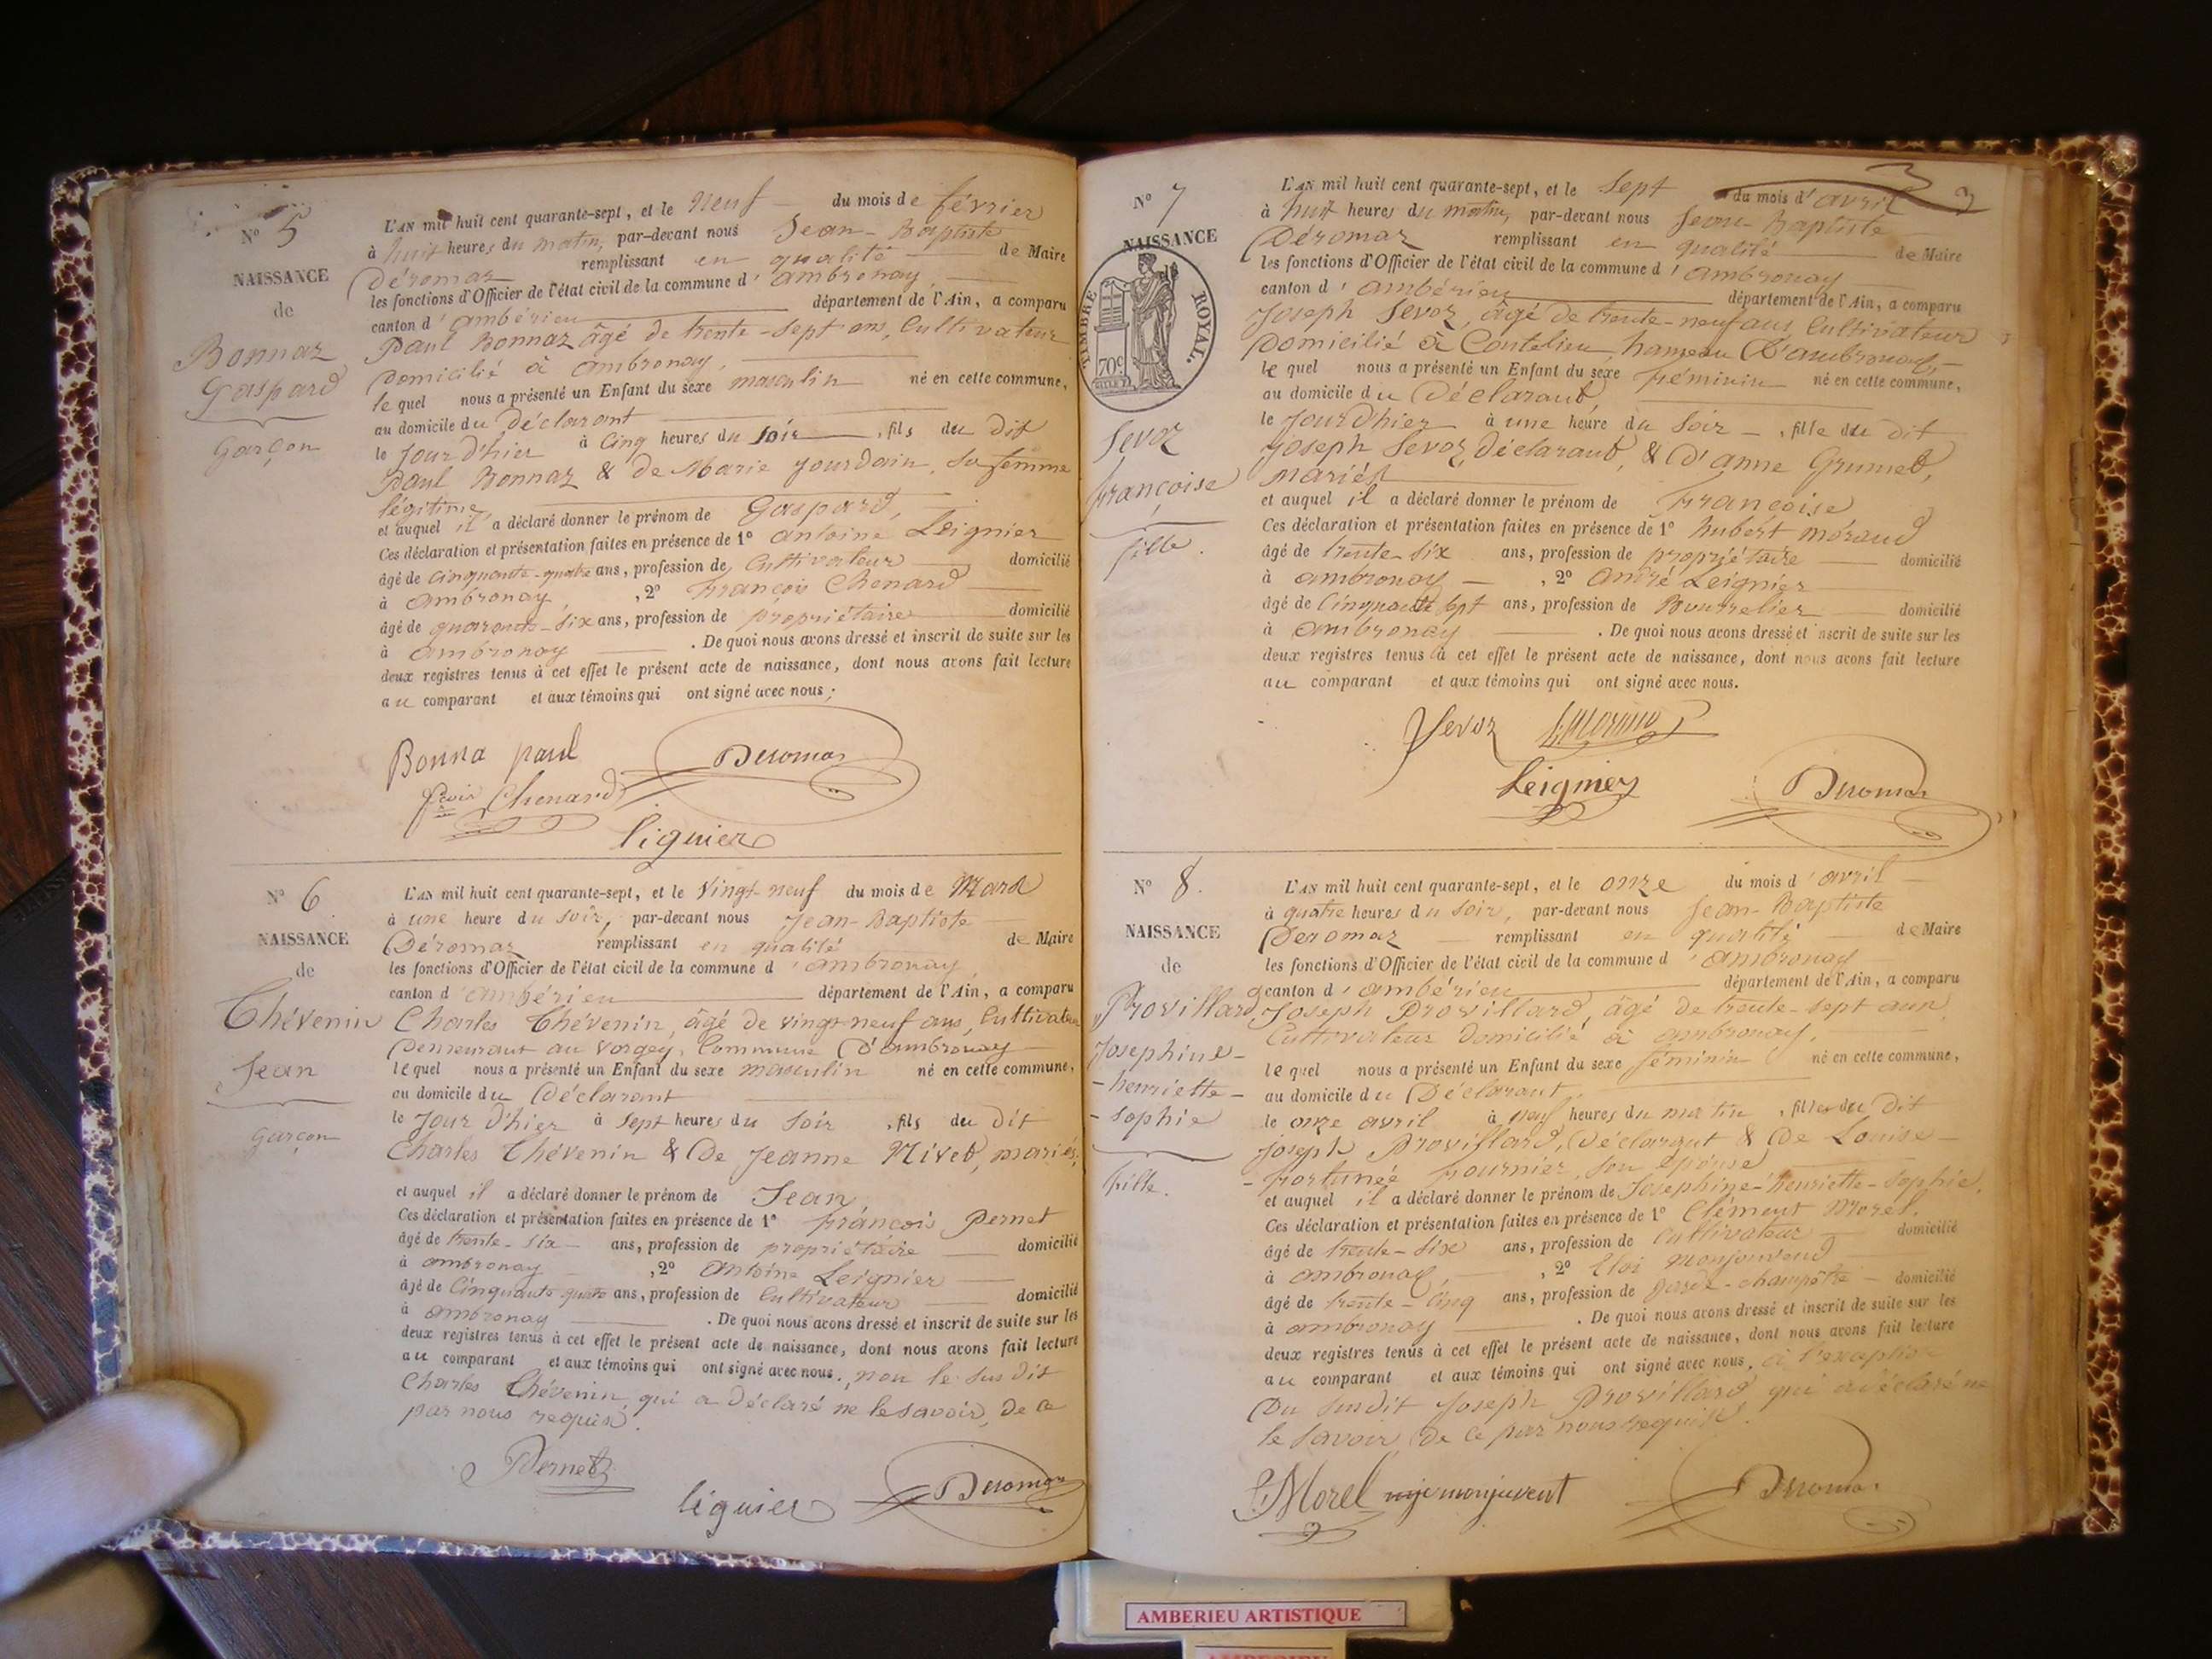 N° 5
NAISSANCE
de
Bonnaz
Gaspard
Garçon
L'AN mil huit cent quarante-sept, et le neuf du mois de février
à huit heures du matin, par-devant nous Jean-Baptiste
Déromas remplissant en qualité de Maire
les fonctions d'Officier de l'état civil de la commune d'ambronay,
canton d'ambérieu département de l'Ain, a comparu
Paul Bonnaz âgé de trente-sept ans, Cultivateur
Domicilié à ambronay,
lequel nous a présenté un Enfant du sexe masculin né en cette commune,
au domicile du Déclarant
le Jour d'hier à Cinq heures du soir, fils du dit
Paul Bonnaz & de Marie Jourdain, sa femme
légitime,
et auquel il a déclaré donner le prénom de Gaspard,
Ces déclaration et présentation faites en présence de 1° antoine Leignier
âgé de Cinquante-quatre ans, profession de Cultivateur domicilié
à ambronay, , 2° François Chenard
âgé de quarante-six ans, profession de propriétaire domicilié
à ambronay . De quoi nous avons dressé et inscrit de suite sur les
deux registres tenus à cet effet le présent acte de naissance, dont nous avons fait lecture
au comparant et aux témoins qui ont signé avec nous;
Bonna paul Deromas
Chenard
liguier
N° 6
NAISSANCE
de
Thévenin
Jean
Garçon
L'AN mil huit cent quarante-sept, et le Vingt-neuf du mois de Mars
à une heure du soir, par-devant nous Jean-Baptiste
Déromas remplissant en qualité de Maire
les fonctions d'Officier de l'état civil de la commune d'ambronay
canton d'ambérieu département de l'Ain, a comparu
Charles Thévenin, âgé de vingt-neuf ans, Cultivateur
Demeurant au Vorgey, Commune D'ambronay
lequel nous a présenté un Enfant du sexe masculin né en cette commune,
au domicile du Déclarant
le Jour d'hier à sept heures du soir, fils du dit
Charles Thévenin & De Jeanne Nivet, mariés,
et auquel il a déclaré donner le prénom de Jean
Ces déclaration et présentation faites en présence de 1° François Pernet
âgé de trente-six ans, profession de propriétaire domicilié
à ambronay , 2° Antoine Leignier
âgé de Cinquante-quatre ans, profession de Cultivateur domicilié
à ambronay . De quoi nous avons dressé et inscrit de suite sur les
deux registres tenus à cet effet le présent acte de naissance, dont nous avons fait lecture
au comparant et aux témoins qui ont signé avec nous, non le sus dit
Charles Thévenin, qui a Déclaré ne le savoir, de ce
par nous requis.
Pernet
liguier Deromas
N° 7
NAISSANCE
TIMBRE ROYAL.
70c
Sevoz
françoise
fille.
3
L'AN mil huit cent quarante-sept, et le Sept du mois d'avril
à huit heures du matin, par-devant nous Jean-Baptiste
Déromas remplissant en qualité de Maire
les fonctions d'Officier de l'état civil de la commune d'ambronay
canton d'ambérieu département de l'Ain, a comparu
Joseph Sevoz, âgé de trente-neuf ans, Cultivateur
Domicilié à Coutelieu, hameau D'ambronay,
lequel nous a présenté un Enfant du sexe féminin né en cette commune,
au domicile du Déclarant
le Jour d'hier à une heure du Soir, fille du dit
Joseph Sevoz, déclarant, & D'anne Grumet,
mariés
et auquel il a déclaré donner le prénom de Françoise
Ces déclaration et présentation faites en présence de 1° hubert Moraud
âgé de trente-six ans, profession de propriétaire domicilié
à ambronay , 2° andré Leignier
âgé de Cinquante sept ans, profession de Bourrelier domicilié
à ambronay . De quoi nous avons dressé et inscrit de suite sur les
deux registres tenus à cet effet le présent acte de naissance, dont nous avons fait lecture
au comparant et aux témoins qui ont signé avec nous.
Sevoz
Leignier Deromas
N° 8.
NAISSANCE
de
Provillard
Josephine-
-henriette-
-sophie
fille.
L'AN mil huit cent quarante-sept, et le onze du mois d'avril
à quatre heures du soir, par-devant nous Jean-Baptiste
Deromas remplissant en qualité de Maire
les fonctions d'Officier de l'état civil de la commune d'ambronay
canton d'ambérieu département de l'Ain, a comparu
Joseph Provillard, âgé de trente-sept ans
Cultivateur Domicilié à ambronay,
lequel nous a présenté un Enfant du sexe féminin né en cette commune,
au domicile du Déclarant
le onze avril à neuf heures du matin, fille du dit
Joseph Provillard, Déclarant & De Louise-
-fortunée fournier, son épouse
et auquel il a déclaré donner le prénom de Josephine-henriette-sophie.
Ces déclaration et présentation faites en présence de 1° Clément Morel.
âgé de trente-six ans, profession de Cultivateur domicilié
à ambronay, , 2° Eloi Monjouvend
âgé de trente-Cinq ans, profession de garde-champêtre domicilié
à ambronay . De quoi nous avons dressé et inscrit de suite sur les
deux registres tenus à cet effet le présent acte de naissance, dont nous avons fait lecture
au comparant et aux témoins qui ont signé avec nous, à l'exception
Du susdit Joseph Provillard qui a déclaré ne
le savoir De ce par nous requis.
Morel monjuvent Deromas
AMBERIEU ARTISTIQUE
AMBERIEU